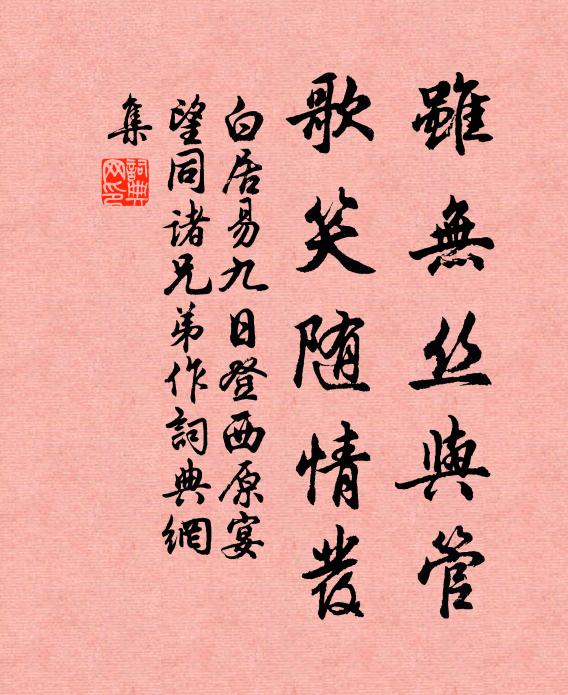 雖無丝與管
歌笑随情發
白居易九日登西原宴
望同诸兄弟作詞典網
集
詞典
网印